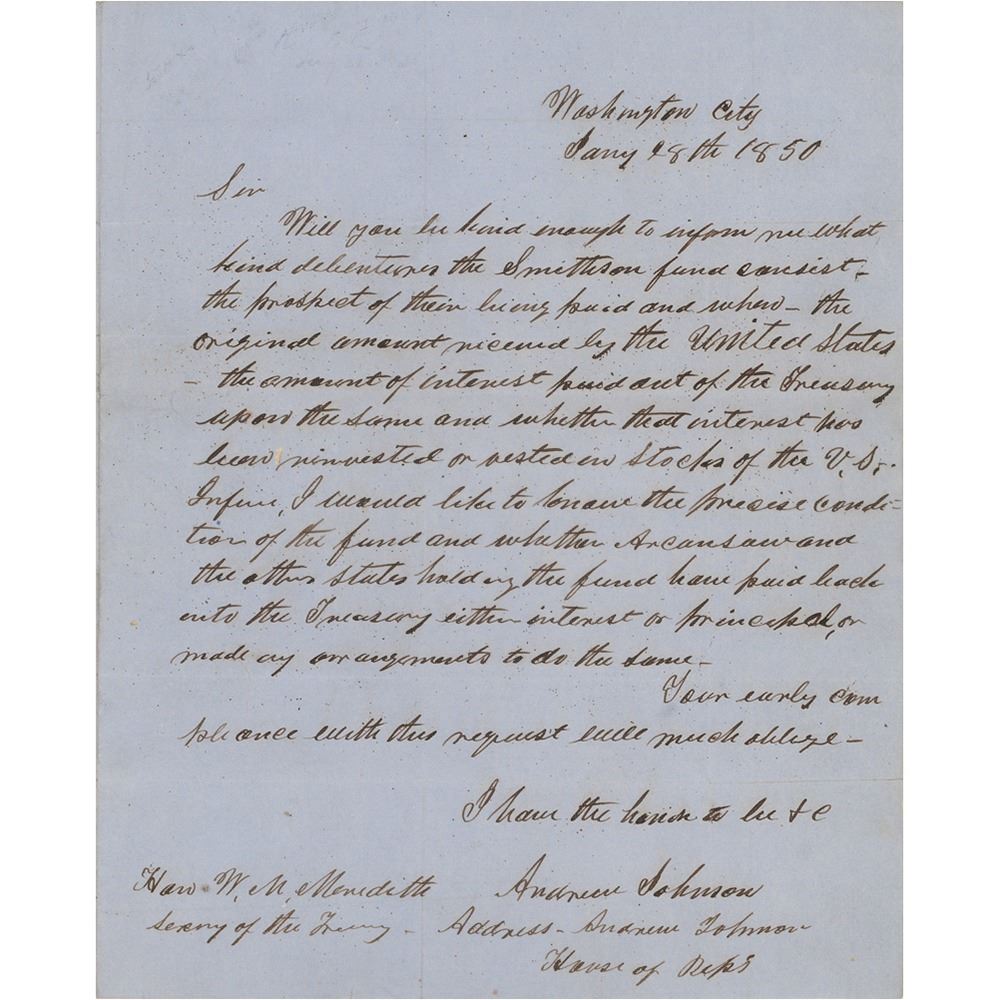 Washington City
Jany 28th 1850
Sir
Will you be kind enough to inform me what
kind debentures the Smithson fund consist -
the prospect of their being paid and when - the
original amount received by the United States
- the amount of interest paid out of the Treasury
upon the same and whether that interest has
been reinvested or vested in Stocks of the U.S.
Infine, I would like to know the precise condi=
tion of the fund and whether Arcansaw and
the other states holding the fund have paid back
into the Treasury either interest or principal, or
made any arrangements to do the same -
Your early com
pliance with this request will much oblige -
I have the honor to be &c
Andrew Johnson
Hon W. M. Meredith
Secrny of the Treury -
Address - Andrew Johnson
House of Reps